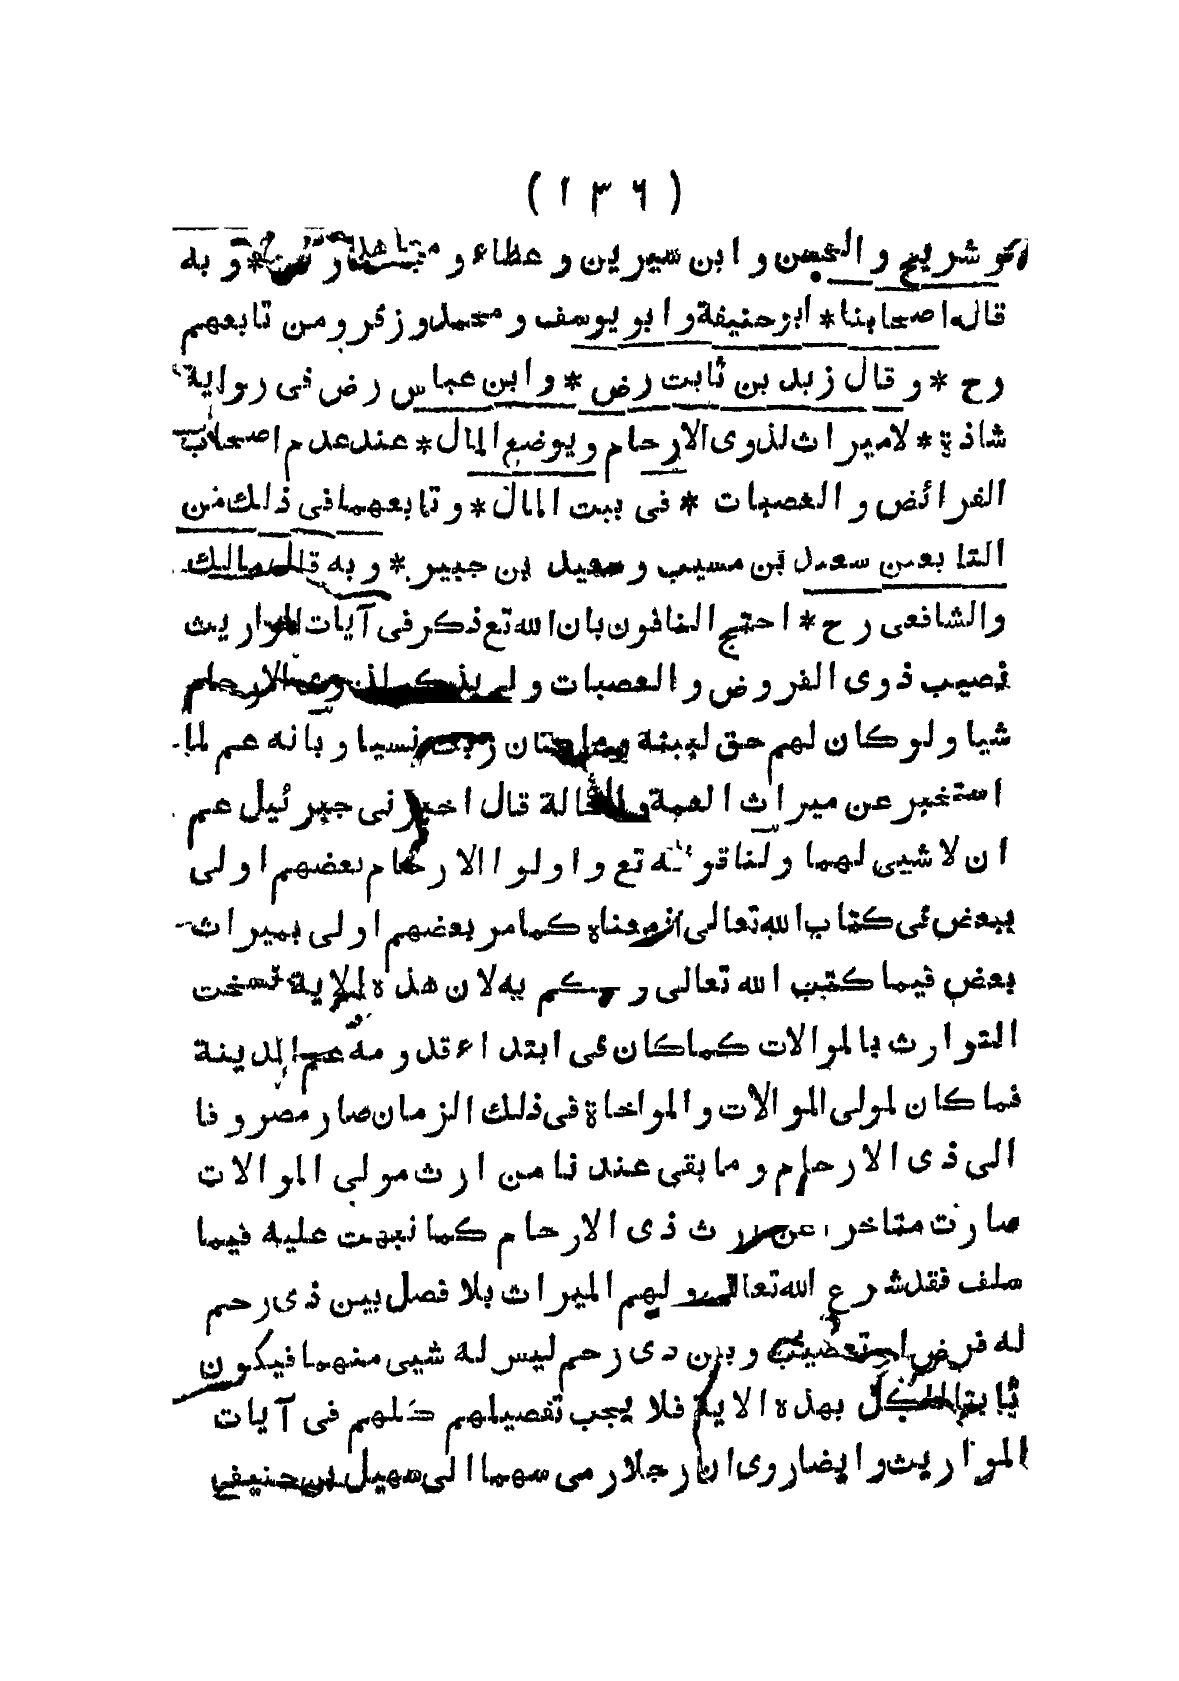 ( ١٣٦ )
شريح والحسن وابن سيرين وعطاء و * وبه
قال اصحابنا * ابو حنيفة وابو يوسف ومحمد وزفر ومن تابعهم
رح * وقال زيد بن ثابت رض * وابن عباس رض فى رواية
شاذة * لا ميراث لذوى الارحام ويوضع المال * عند عدم اصحاب
الفرائض والعصبات * فى بيت المال * وتابعهما فى ذلك من
التابعين سعيد بن مسيب وسعيد بن جبير * وبه قال مالك
والشافعى رح * احتج النافون بان الله تع ذكر فى آيات المواريث
نصيب ذوى الفروض والعصبات ولم يذكر لذوى الارحام
شيا ولو كان لهم حق لبينه وما كان ربك نسيا وبانه عم لما
استخبر عن ميراث العمة والخالة قال اخبرنى جبرئيل عم
ان لا شيى لهما ولنا قوله تع واولوا الارحام بعضهم اولى
ببعض فى كتاب الله تعالى اذ معناه كما مر بعضهم اولى بميراث
بعض فيما كتب الله تعالى وحكم به لان هذه الاية نسخت
التوارث بالموالات كما كان فى ابتداء قدومه عم المدينة
فما كان لمولى الموالات والمواخاة فى ذلك الزمان صار مصروفا
الى ذى الارحام وما بقى عندنا من ارث مولى الموالات
صارت متاخرا عن ارث ذى الارحام كما نبهت عليه فيما
سلف فقد شرع الله تعالى لهم الميراث بلا فصل بين ذى رحم
له فرض او تعصيب وبين ذى رحم ليس له شيى منهما فيكون
ثابتا للكل بهذه الاية فلا يجب تفصيلهم كلهم فى آيات
المواريث وايضا روى ان رجلا رمى سهما الى سهيل بن حنيف